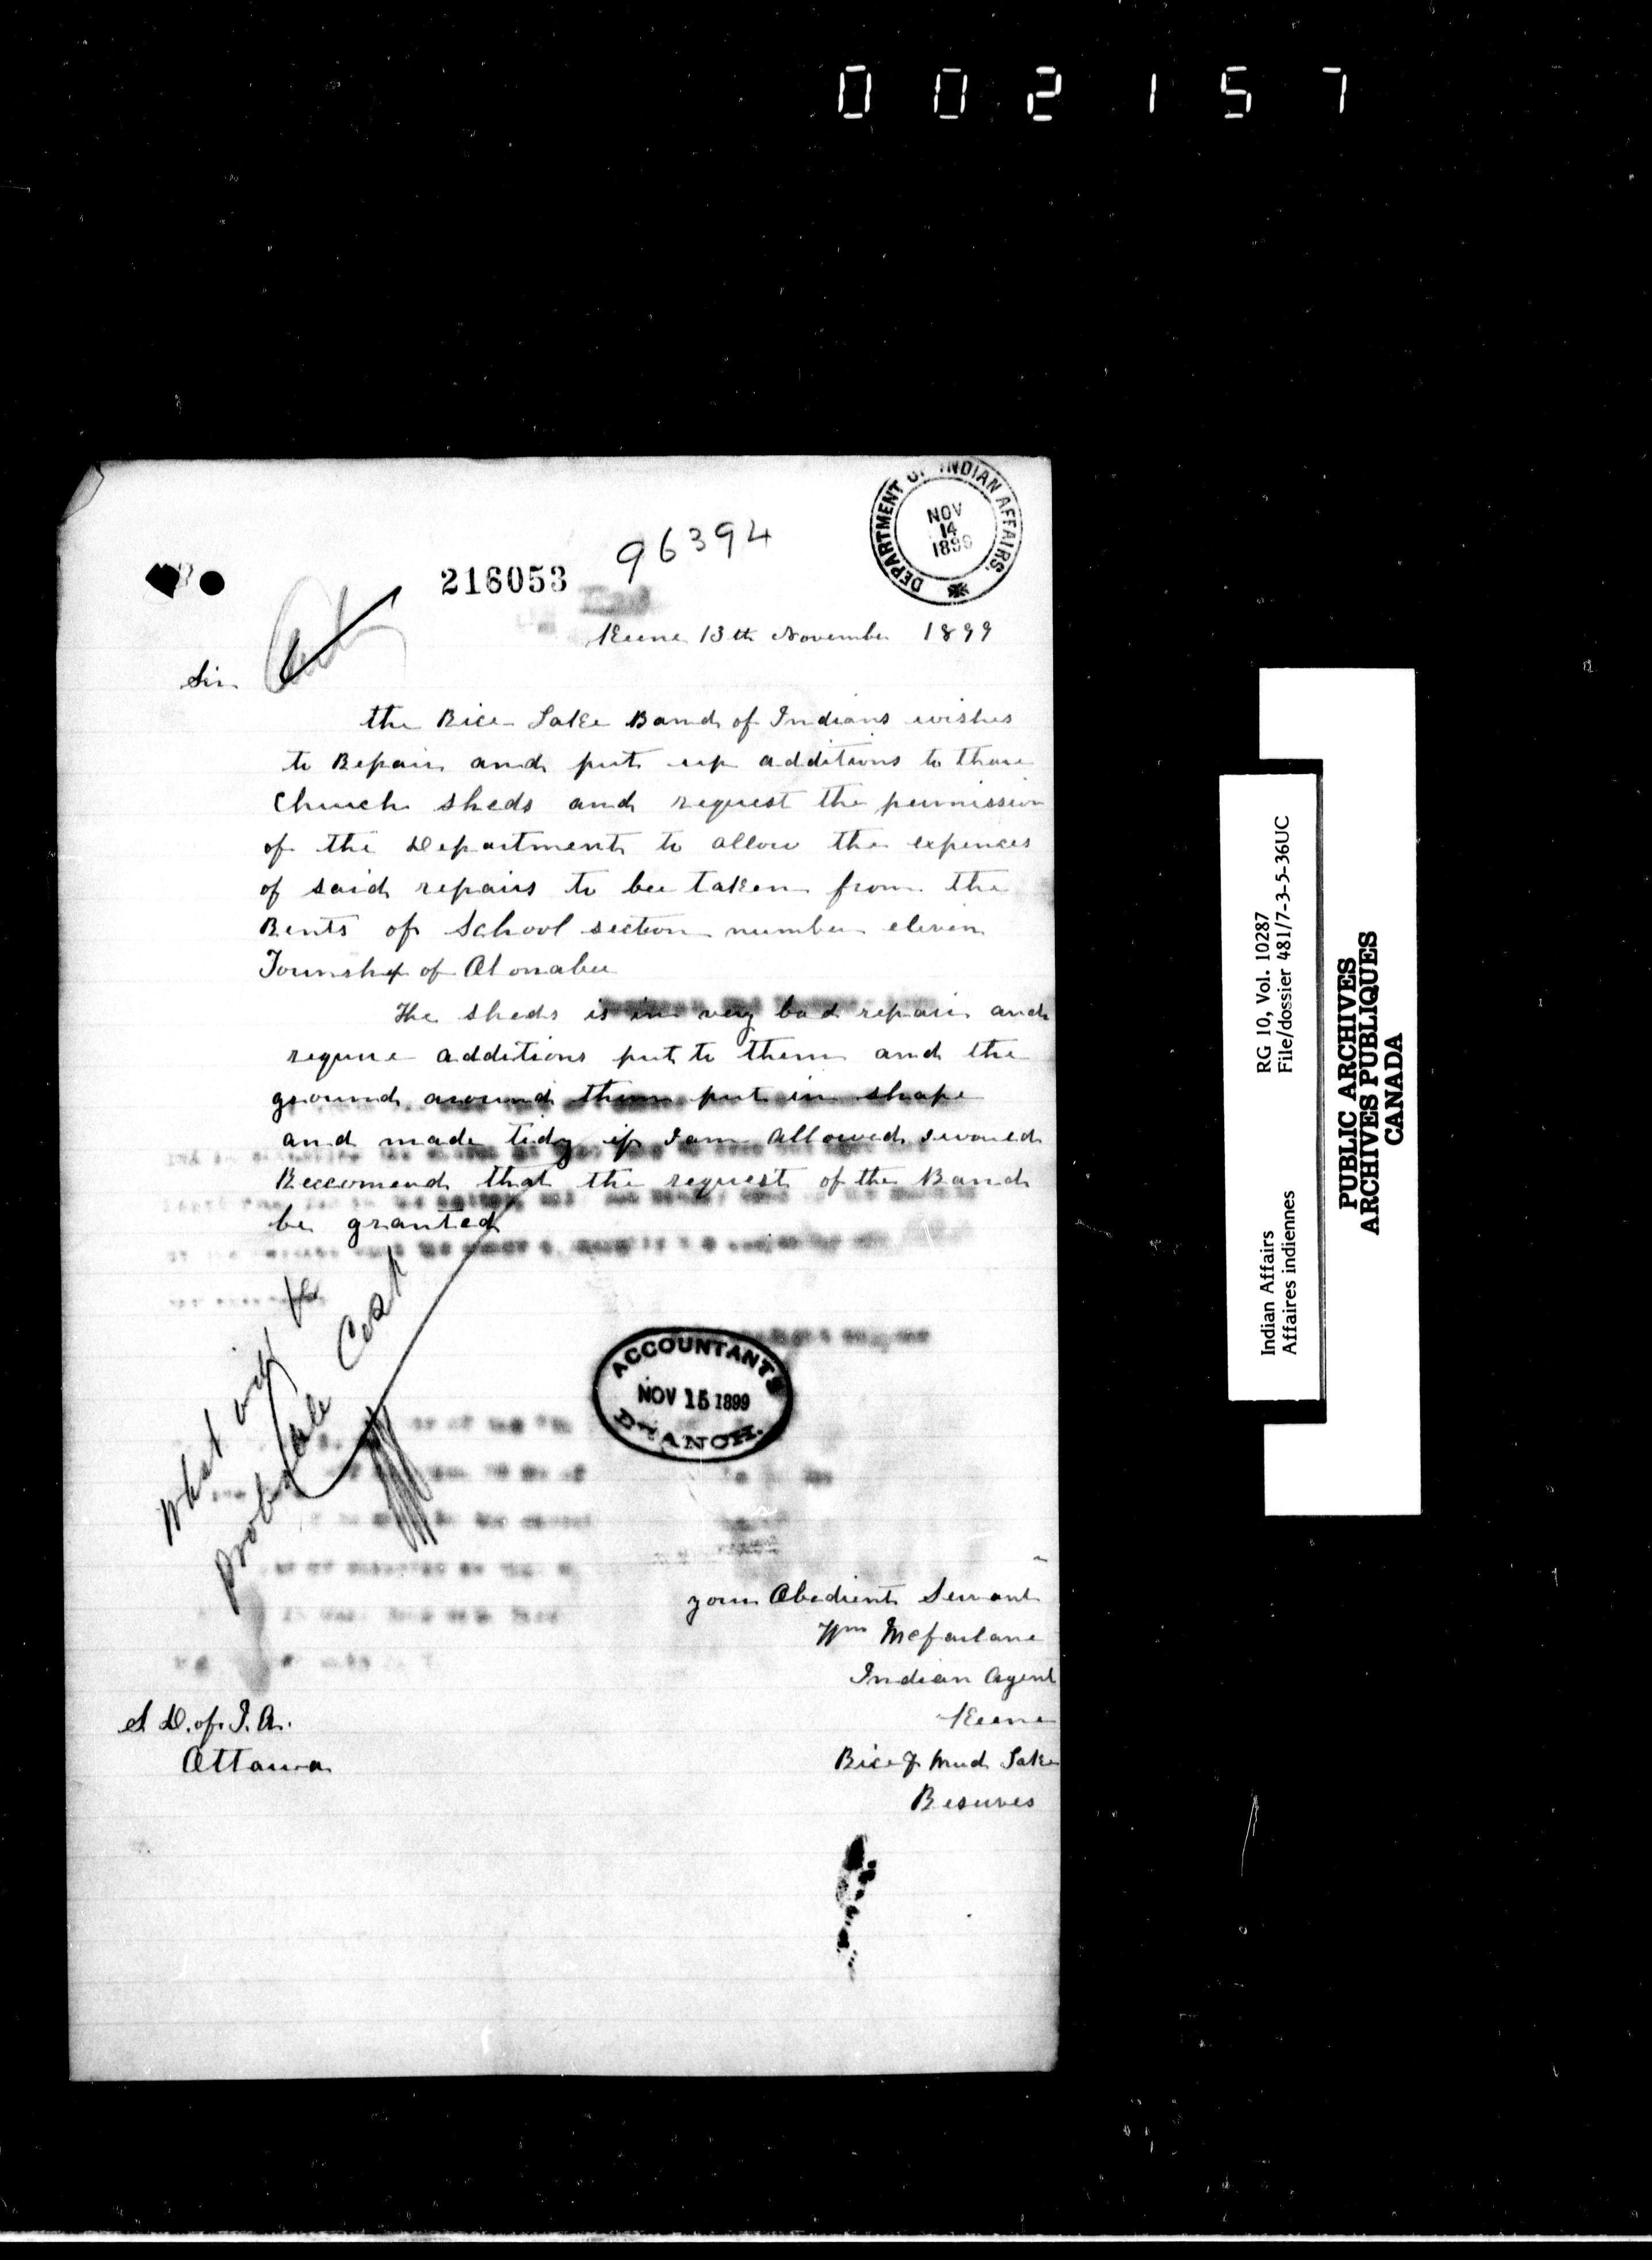 002157
DEPARTMENT OF INDIAN AFFAIRS.
NOV
14
1899
96394
216053
Keene 13th November 1899
Sir
the Rice Lake Band of Indians wishes
to Repair and put up additions to thare
Church sheds and request the permission
of the Department to allow the expences
of said repairs to bee taken from the
Rents of School section number eleven
Township of Otonabee
The sheds is in very bad repair and
require additions put to them and the
ground around them put in shape
and made tidy if I am allowed I would
Reccomend that the request of the Band
be granted
What will be
probable Cost
ACCOUNTANTS
NOV 15 1899
BRANCH.
your Obedient Servant
Wm McFarlane
Indian Agent
Keene
Rice & Mud Lake
Reserves
S. D. of I. A.
Ottawa
Indian Affairs RG 10, Vol. 10287
Affaires indiennes File/dossier 481/7-3-5-36UC
PUBLIC ARCHIVES
ARCHIVES PUBLIQUES
CANADA